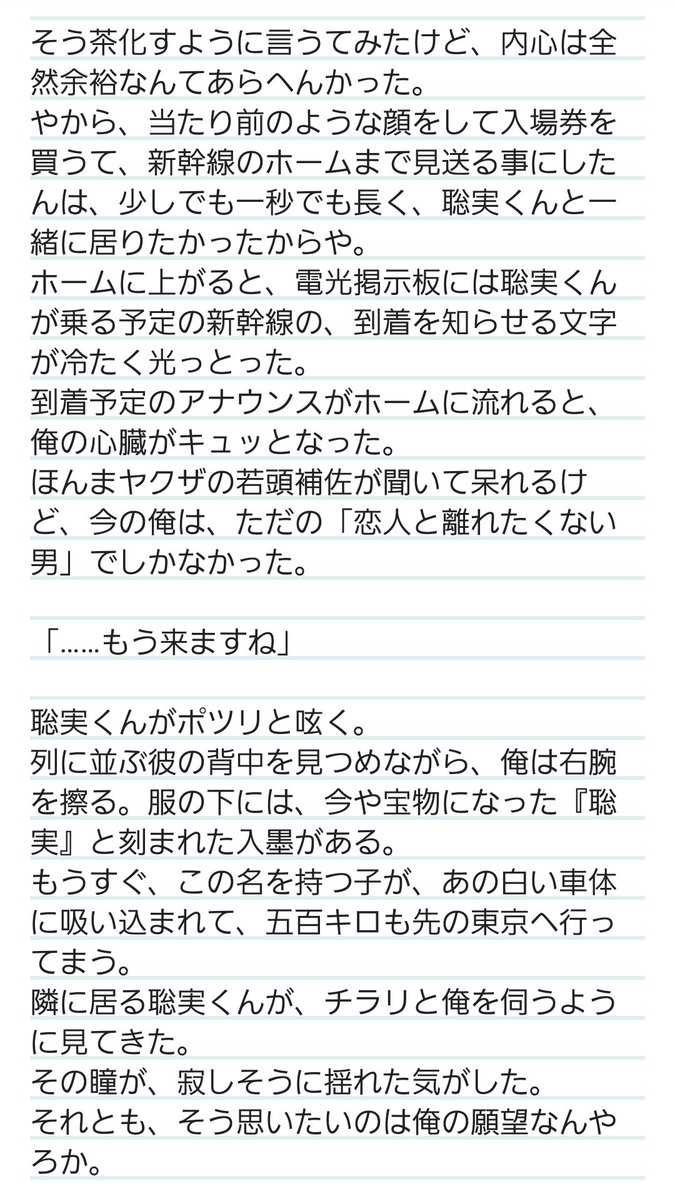 そう茶化すように言うてみたけど、内心は全
然余裕なんてあらへんかった。
やから、当たり前のような顔をして入場券を
買うて、新幹線のホームまで見送る事にした
んは、少しでも一秒でも長く、聡実くんと一
緒に居りたかったからや。
ホームに上がると、電光掲示板には聡実くん
が乗る予定の新幹線の、到着を知らせる文字
が冷たく光っとった。
到着予定のアナウンスがホームに流れると、
俺の心臓がキュッとなった。
ほんまヤクザの若頭補佐が聞いて呆れるけ
ど、今の俺は、ただの「恋人と離れたくない
男」でしかなかった。
「……もう来ますね」
聡実くんがポツリと呟く。
列に並ぶ彼の背中を見つめながら、俺は右腕
を擦る。服の下には、今や宝物になった『聡
実』と刻まれた入墨がある。
もうすぐ、この名を持つ子が、あの白い車体
に吸い込まれて、五百キロも先の東京へ行っ
てまう。
隣に居る聡実くんが、チラリと俺を伺うよう
に見てきた。
その瞳が、寂しそうに揺れた気がした。
それとも、そう思いたいのは俺の願望なんや
ろか。